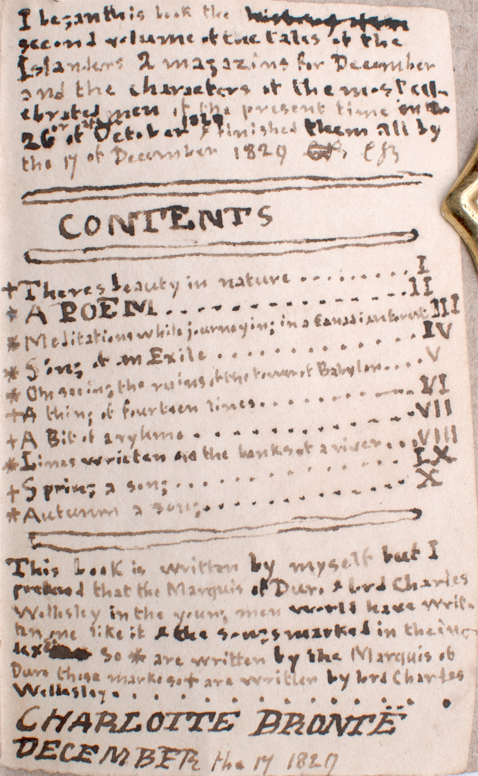 I began this book the
second volume of the tales of the
Islanders 2 magazins for December
and the characters of the most cel-
ebrated men of the present time on the
26 of October 1829 & finished them all by
the 17 of December 1829 CB
CONTENTS
+Theres beauty in nature .......... I
*A POEM .......... II
*Meditations while journeying in a Canadian forest III
*Song of an Exile .......... IV
*On seeing the ruins of the tower of Babylon .... V
+A thing of fourteen lines .......... VI
+A Bit of a ryhme .......... VII
*Lines written on the banks of a river ... VIII
+Spring a song .......... IX
*Autumn a song .......... X
This book is written by myself but I
pretend that the Marquis of Duro & lord Charles
Wellesley in the young men world have writ-
ten one like it & the songs marked in the in-
dex so * are written by the Marquis of
Duro those marked so + are written by lord Charles
Wellesley ..........
CHARLOTTE BRONTË
DECEMBER the 17 1829